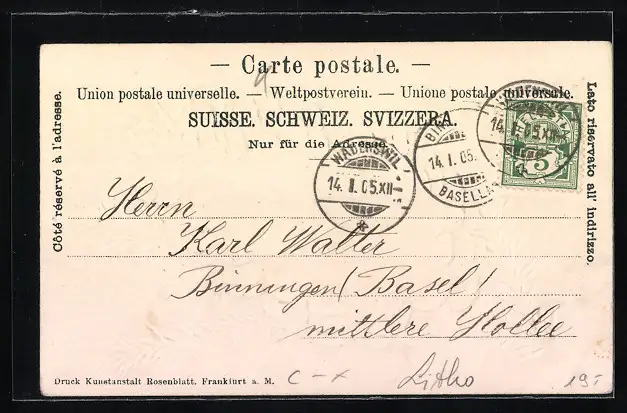 — Carte postale. —
Union postale universelle. — Weltpostverein. — Unione postale universale.
SUISSE. SCHWEIZ. SVIZZERA.
Nur für die Adresse.
Côté réservé à l'adresse.
Lato riservato all' indirizzo.
WÄDENSWIL
14. I. 05.XII
BIN
14. I. 05.
BASELLA
14. I. 05.XII
5
Herrn
Karl Walter
Binningen (Basel)
mittlere Hollee
Druck Kunstanstalt Rosenblatt, Frankfurt a. M.
C - x
Litho
19.-